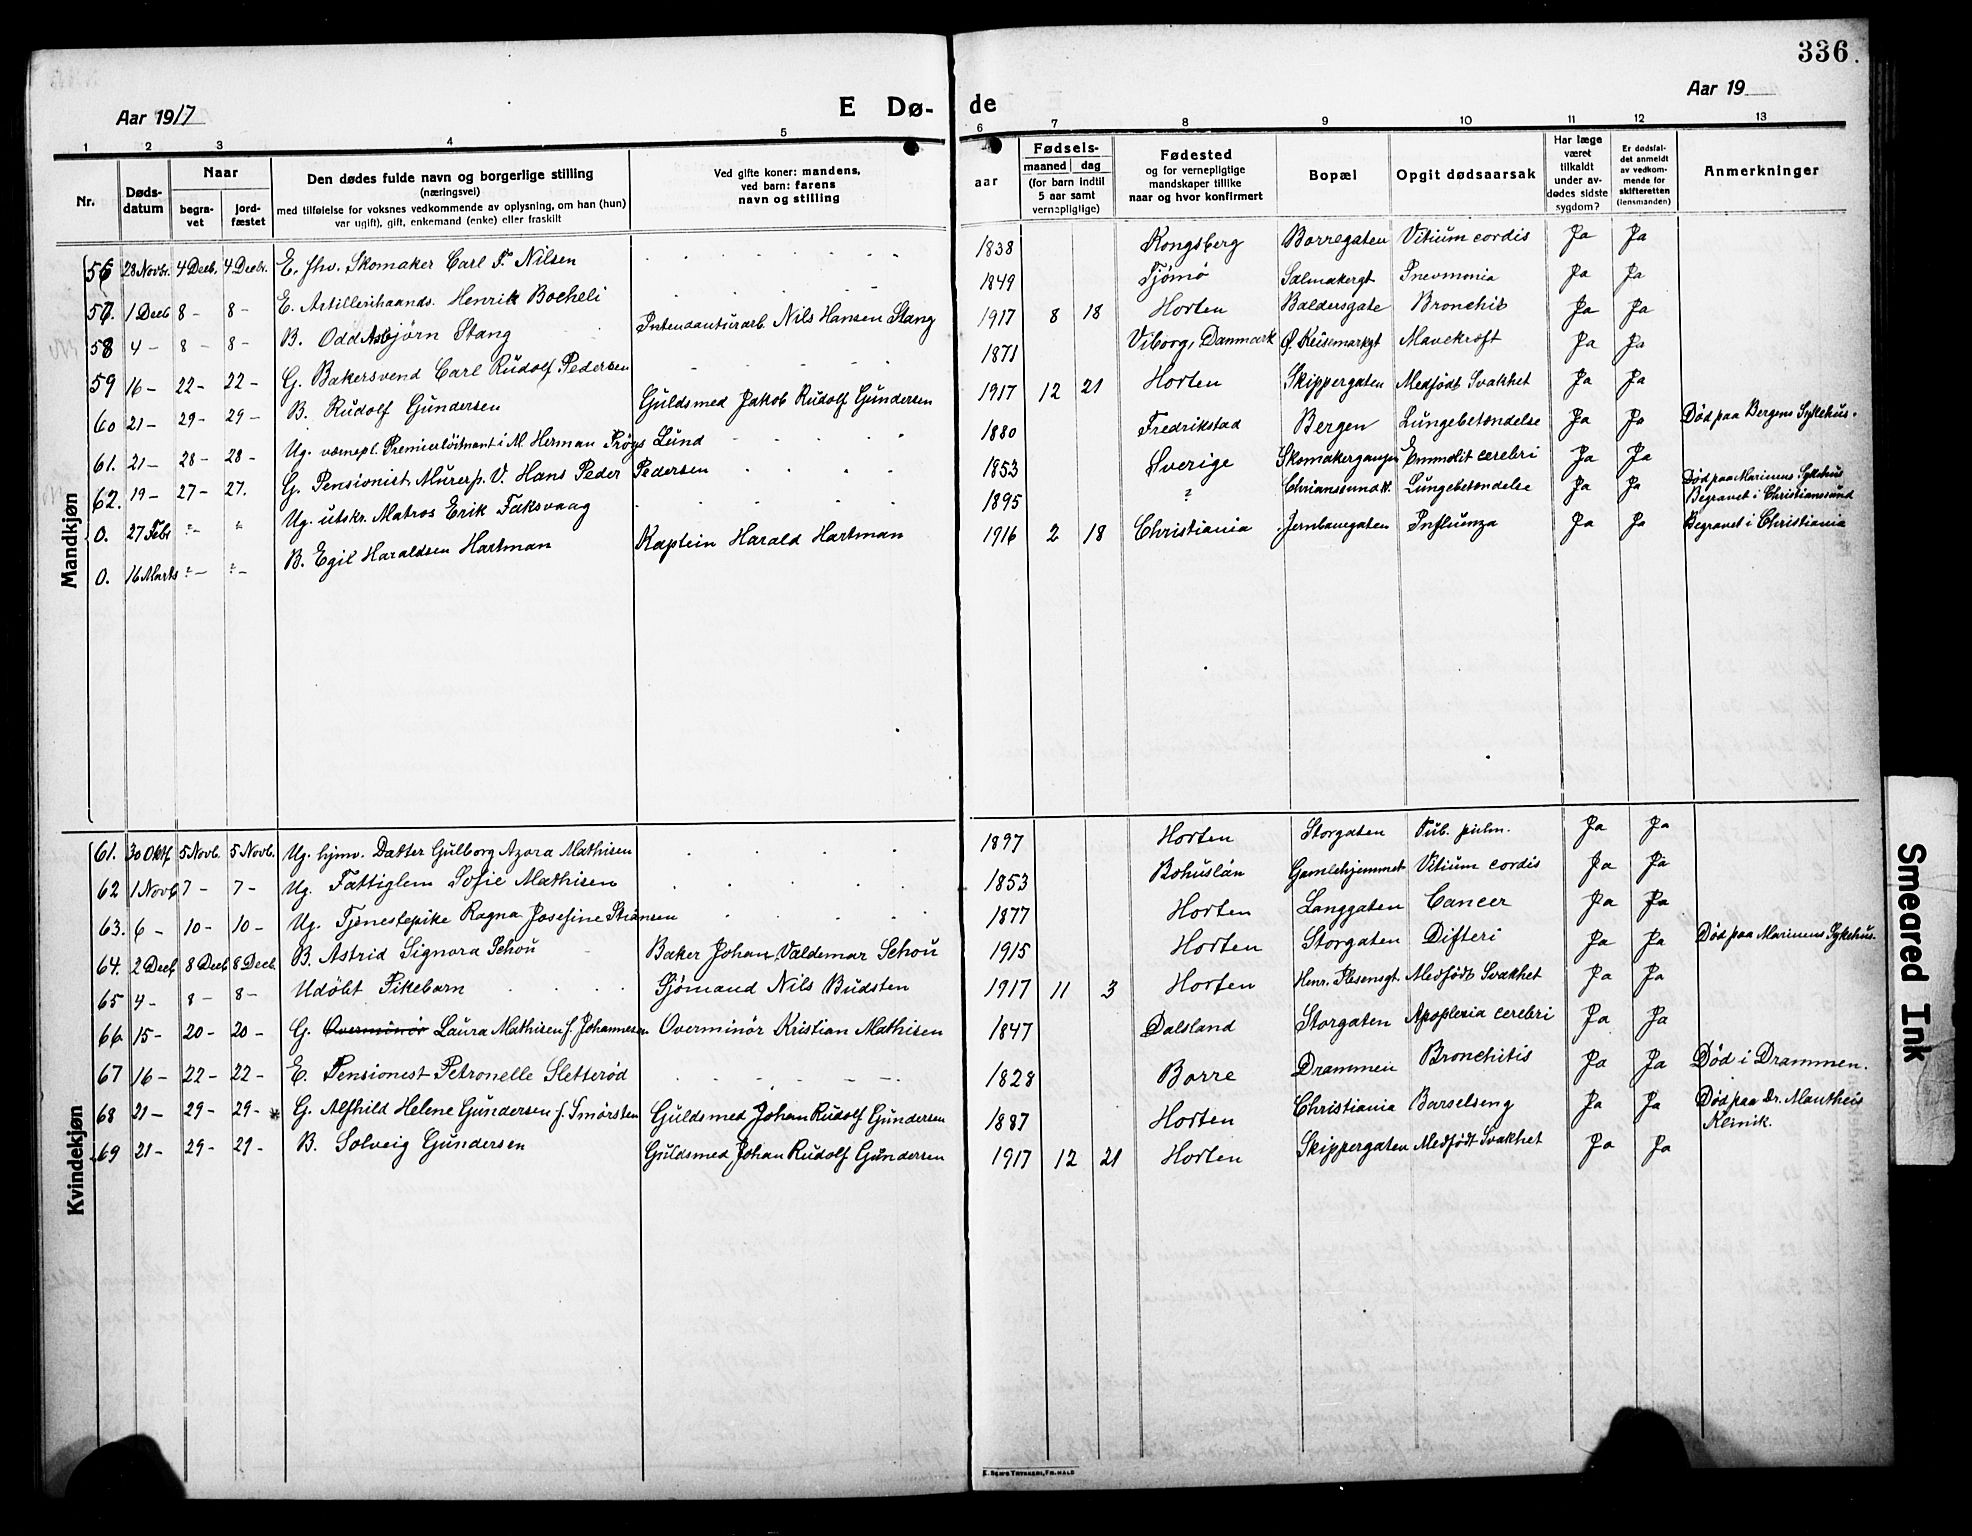 336.
Aar 1917
E Dø-
de
Aar 19
1 2 3 4 5 6 7 8 9 10 11 12 13
Nr.
Døds-
datum
Naar
begra-
vet
jord-
fæstet
Den dødes fulde navn og borgerlige stilling
(næringsvei)
med tilføielse for voksnes vedkommende av oplysning, om han (hun)
var ugift), gift, enkemand (enke) eller fraskilt
Ved gifte koner: mandens,
ved barn: farens
navn og stilling
aar
Fødsels-
maaned dag
(for barn indtil
5 aar samt
vernepligtige)
Fødested
og for vernepligtige
mandskaper tillike
naar og hvor konfirmert
Bopæl
Opgit dødsaarsak
Har læge
været
tilkaldt
under av-
dødes sidste
sygdom?
Er dødsfal-
det anmeldt
av vedkom-
mende for
skifteretten
(lensmanden)
Anmerkninger
Mandkjøn
56 28 Novbr. 4 Decb. 4 Decbr. E. fhv. Skomaker Carl F. Nilsen 1838 Kongsberg Borregaten Vitium cordis Ja Ja
57. 1 Decb 8 - 8 - E. Artillerihaands. Henrik Bocheli 1849 Tjømø Salmakergt Pnevmonia Ja Ja
58 4 - 8 - 8 - B. Odd Asbjörn Stang Intendanturarb. Nils Hansen Stang 1917 8 18 Horten Baldersgate Bronchit Ja Ja
59 16 - 22 - 22 - G. Bakersvend Carl Rudolf Pedersen 1871 Viborg, Danmark Ø. Keisemarkgt Mavekræft Ja Ja
60 21 - 29 - 29 - B. Rudolf Gundersen Guldsmed Jakob Rudolf Gundersen 1917 12 21 Horten Skippergaten Medfödt Svakhet Ja Ja
61. 21 - 28 - 28 - Ug.værnepl. Premierløitnant i M. Herman Prøys Lund 1880 Fredrikstad Bergen Lungebetændelse Ja Ja Död paa Bergens Sykehus.
62. 19 - 27 - 27. G. Pensionist Murerf. V. Hans Peder Pedersen 1853 Sverige Skomakergangen Emmolit cerebri Ja Ja
0. 27 Febr ? - " Ug. utskr. Matros Erik Faksvaag 1895 ? Chrianssund N. Lungebetændelse Ja Ja Död paa Marinens Sykehus
Begravet i Christianssund
0. 16 Marts ? - ? - B. Egil Haraldsen Hartman Kaptein Harald Hartman 1916 2 18 Christiania Jernbanegaten Influenza Ja Ja Begravet i Christiania
Kvindekjøn
61. 30 Oktb 5 Novb. 5 Novb. Ug. hjmv. Datter Gulborg Azora Mathisen 1897 Horten Storgaten Tub. pulm. Ja Ja
62 1 Novb 7 - 7 - Ug. Fattiglem Sofie Mathisen 1853 Bohuslän Gamlehjemmet Vitium cordis Ja Ja
63. 6 - 10 - 10 - Ug. Tjenestepike Ragna Josefine Stiansen 1877 Horten Langgaten Cancer Ja Ja
64. 2 Decb 8 Decb 8 Decb. B. Astrid Signora Schou Baker Johan Valdemar Schou 1915 Horten Storgaten Difteri Ja Ja Död paa Marinens Sykehus.
65 4 - 8 - 8 - Udöbt Pikebarn Sjömand Nils Budsten 1917 11 3 Horten Henr. Ibsensgt. Medfödt Svakhet Ja Ja
66 15 - 20 - 20 - G. Overminör Laura Mathisen f. Johannesen Overminör Kristian Mathisen 1847 Dalsland Storgaten Apoplexia cerebri Ja Ja
67 16 - 22 - 22 - E. Pensionist Petronelle Sletteröd 1828 Borre Drammen Bronchitis Ja Ja Död i Drammen.
68 21 - 29 - 29 - * G. Alfhild Helene Gundersen f. Smörsten Guldsmed Johan Rudolf Gundersen 1887 Horten Christiania Barselseng Ja Ja Död paa Dr. Mantheis
Klinik.
69 21 - 29 - 29 - B. Solveig Gundersen Guldsmed Johan Rudolf Gundersen 1917 12 21 Horten Skippergaten Medfödt Svakhet Ja Ja
E. SEM'S TRYKKERI, FR.HALD
Smeared Ink